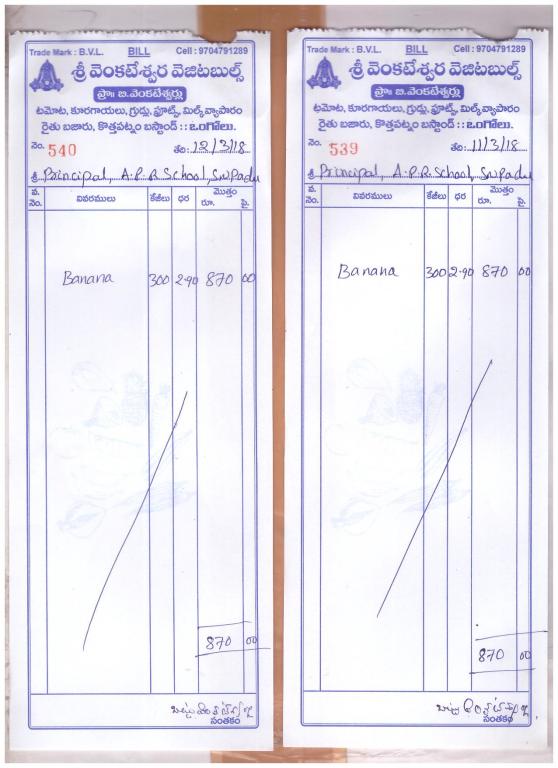 Trade Mark : B.V.L. BILL Cell : 9704791289
శ్రీ వెంకటేశ్వర వెజిటబుల్స్
ప్రొః బి.వెంకటేశ్వర్లు
టమోట, కూరగాయలు, గ్రుడ్లు, ఫ్రూట్స్, మిల్క్ వ్యాపారం
రైతు బజారు, కొత్తపట్నం బస్టాండ్ :: ఒంగోలు.
నెం. 540 తేది: 12/3/18
శ్రీ Principal, A.P.R School, S.N Padu
వ.నెం. వివరములు కేజీలు ధర మొత్తం రూ. పై.
Banana 300 2-90 870 00
870 00
సంతకం
Trade Mark : B.V.L. BILL Cell : 9704791289
శ్రీ వెంకటేశ్వర వెజిటబుల్స్
ప్రొః బి.వెంకటేశ్వర్లు
టమోట, కూరగాయలు, గ్రుడ్లు, ఫ్రూట్స్, మిల్క్ వ్యాపారం
రైతు బజారు, కొత్తపట్నం బస్టాండ్ :: ఒంగోలు.
నెం. 539 తేది: 11/3/18
శ్రీ Principal, A.P.R. School, S.N Padu
వ.నెం. వివరములు కేజీలు ధర మొత్తం రూ. పై.
Banana 300 2-90 870 00
870 00
సంతకం